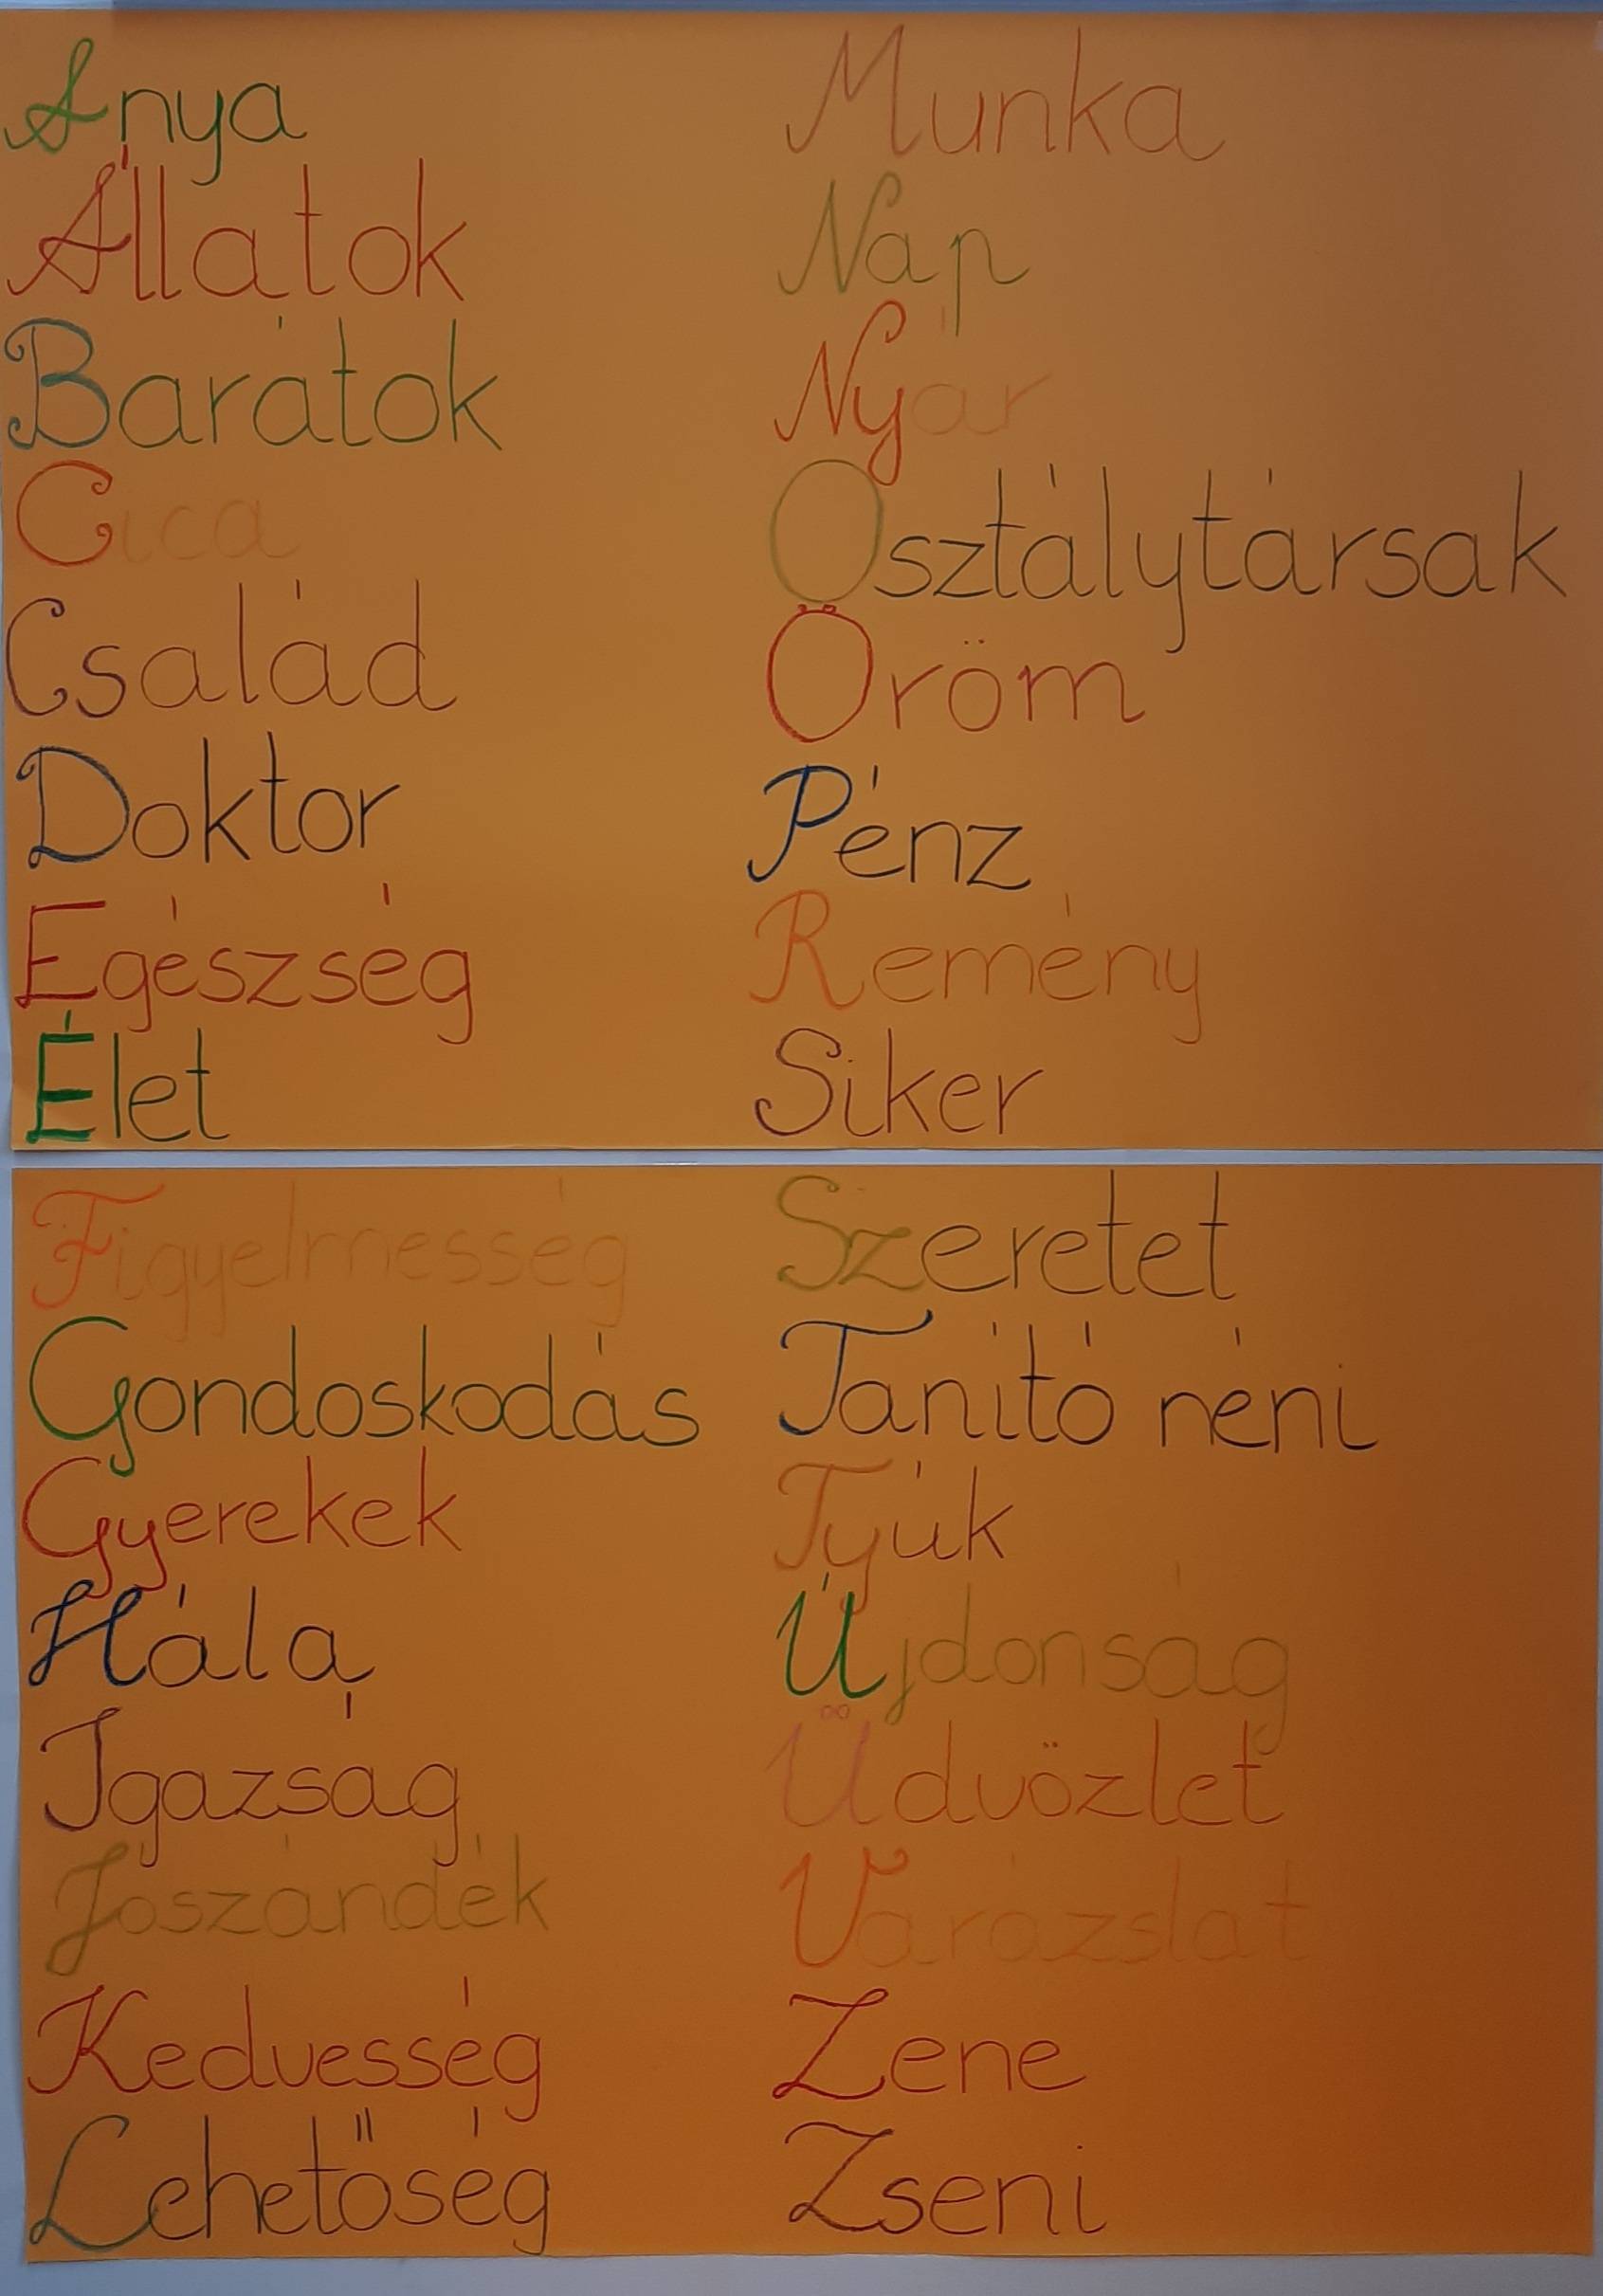 Anya
Állatok
Barátok
Cica
Család
Doktor
Egészség
Élet
Figyelmesség
Gondoskodás
Gyerekek
Hála
Igazság
Jószándék
Kedvesség
Lehetőség
Munka
Nap
Nyár
Osztálytársak
Öröm
Pénz
Remény
Siker
Szeretet
Tanító néni
Tyúk
Újdonság
Üdvözlet
Varázslat
Zene
Zseni